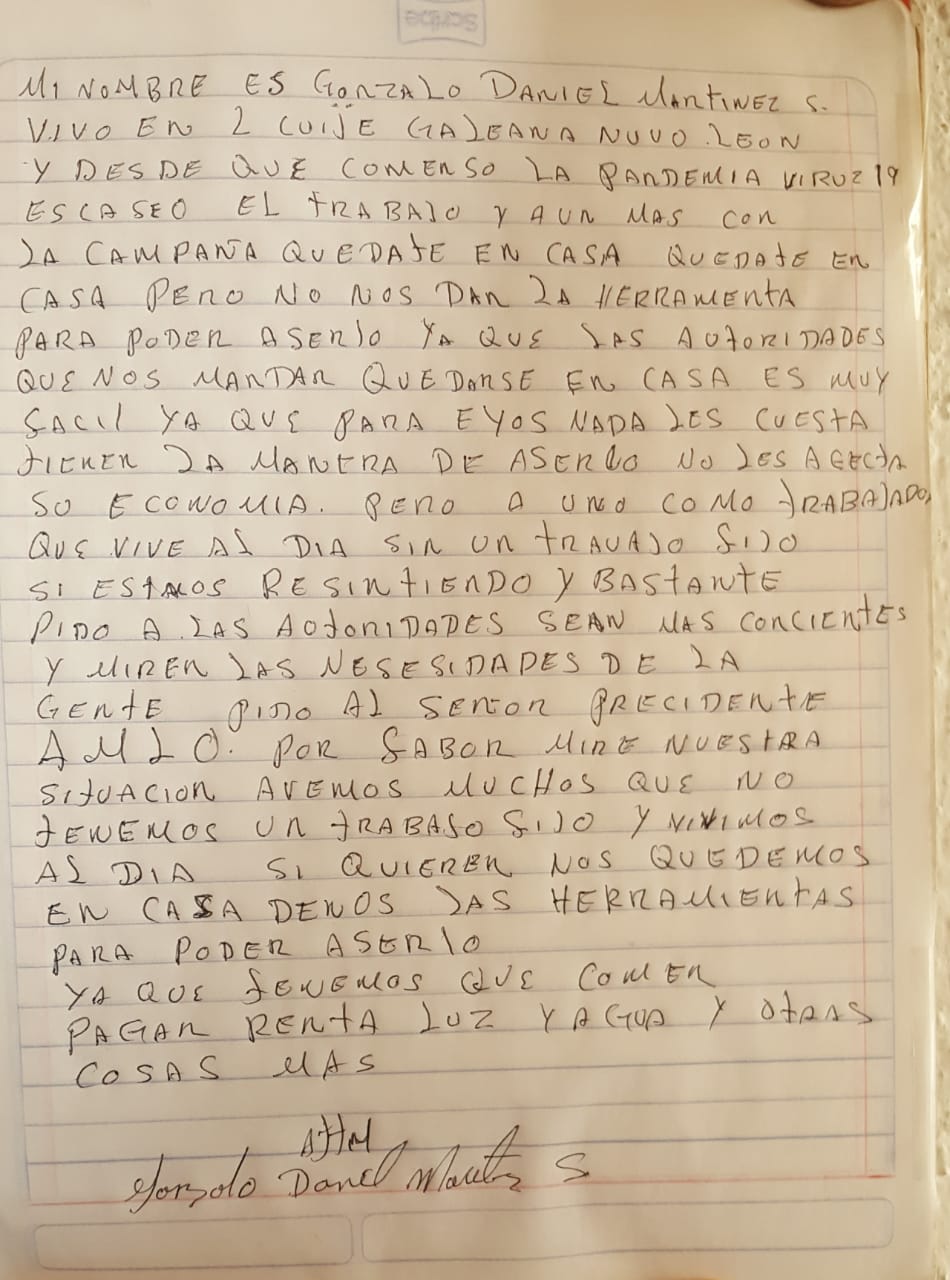 Scribe
MI NOMBRE ES GONZALO DANIEL MARTINEZ S.
VIVO EN 2 CUIJE GALEANA NUVO LEON
Y DESDE QUE COMENSO LA PANDEMIA VIRUZ 19
ESCASEO EL TRABAJO Y AUN MAS CON
LA CAMPAÑA QUEDATE EN CASA QUEDATE EN
CASA PERO NO NOS DAN LA HERRAMENTA
PARA PODER ASERLO YA QUE LAS AUTORIDADES
QUE NOS MANDAN QUEDARSE EN CASA ES MUY
FACIL YA QUE PARA EYOS NADA LES CUESTA
TIENEN LA MANERA DE ASERLO NO LES AFECTA
SU ECONOMIA. PERO A UNO COMO TRABAJADOR
QUE VIVE AL DIA SIN UN TRAVAJO FIJO
SI ESTAMOS RESINTIENDO Y BASTANTE
PIDO A LAS AUTORIDADES SEAN MAS CONCIENTES
Y MIREN LAS NESESIDADES DE LA
GENTE PIDO AL SEÑOR PRECIDENTE
AMLO. POR FABOR MIRE NUESTRA
SITUACION AVEMOS MUCHOS QUE NO
TENEMOS UN TRABAJO FIJO Y VIVIMOS
AL DIA SI QUIEREN NOS QUEDEMOS
EN CASA DENOS LAS HERRAMIENTAS
PARA PODER ASERLO
YA QUE TENEMOS QUE COMER
PAGAR RENTA LUZ Y AGUA Y OTRAS
COSAS MAS
Gonzalo Daniel S